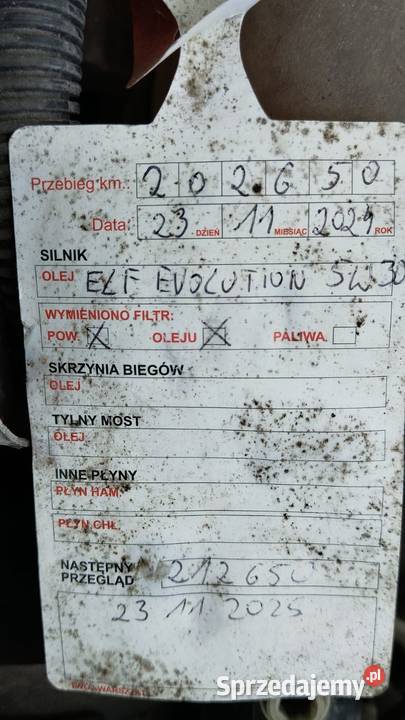 Przebieg km.: 202650
Data: 23 DZIEŃ 11 MIESIĄC 2024 ROK
SILNIK
OLEJ ELF EVOLUTION 5W30
WYMIENIONO FILTR:
POW. X OLEJU X PALIWA
SKRZYNIA BIEGÓW
OLEJ
TYLNY MOST
OLEJ
INNE PŁYNY
PŁYN HAM.
PŁYN CHŁ.
NASTĘPNY PRZEGLĄD 212650
23 11 2025
Sprzedajemy.pl